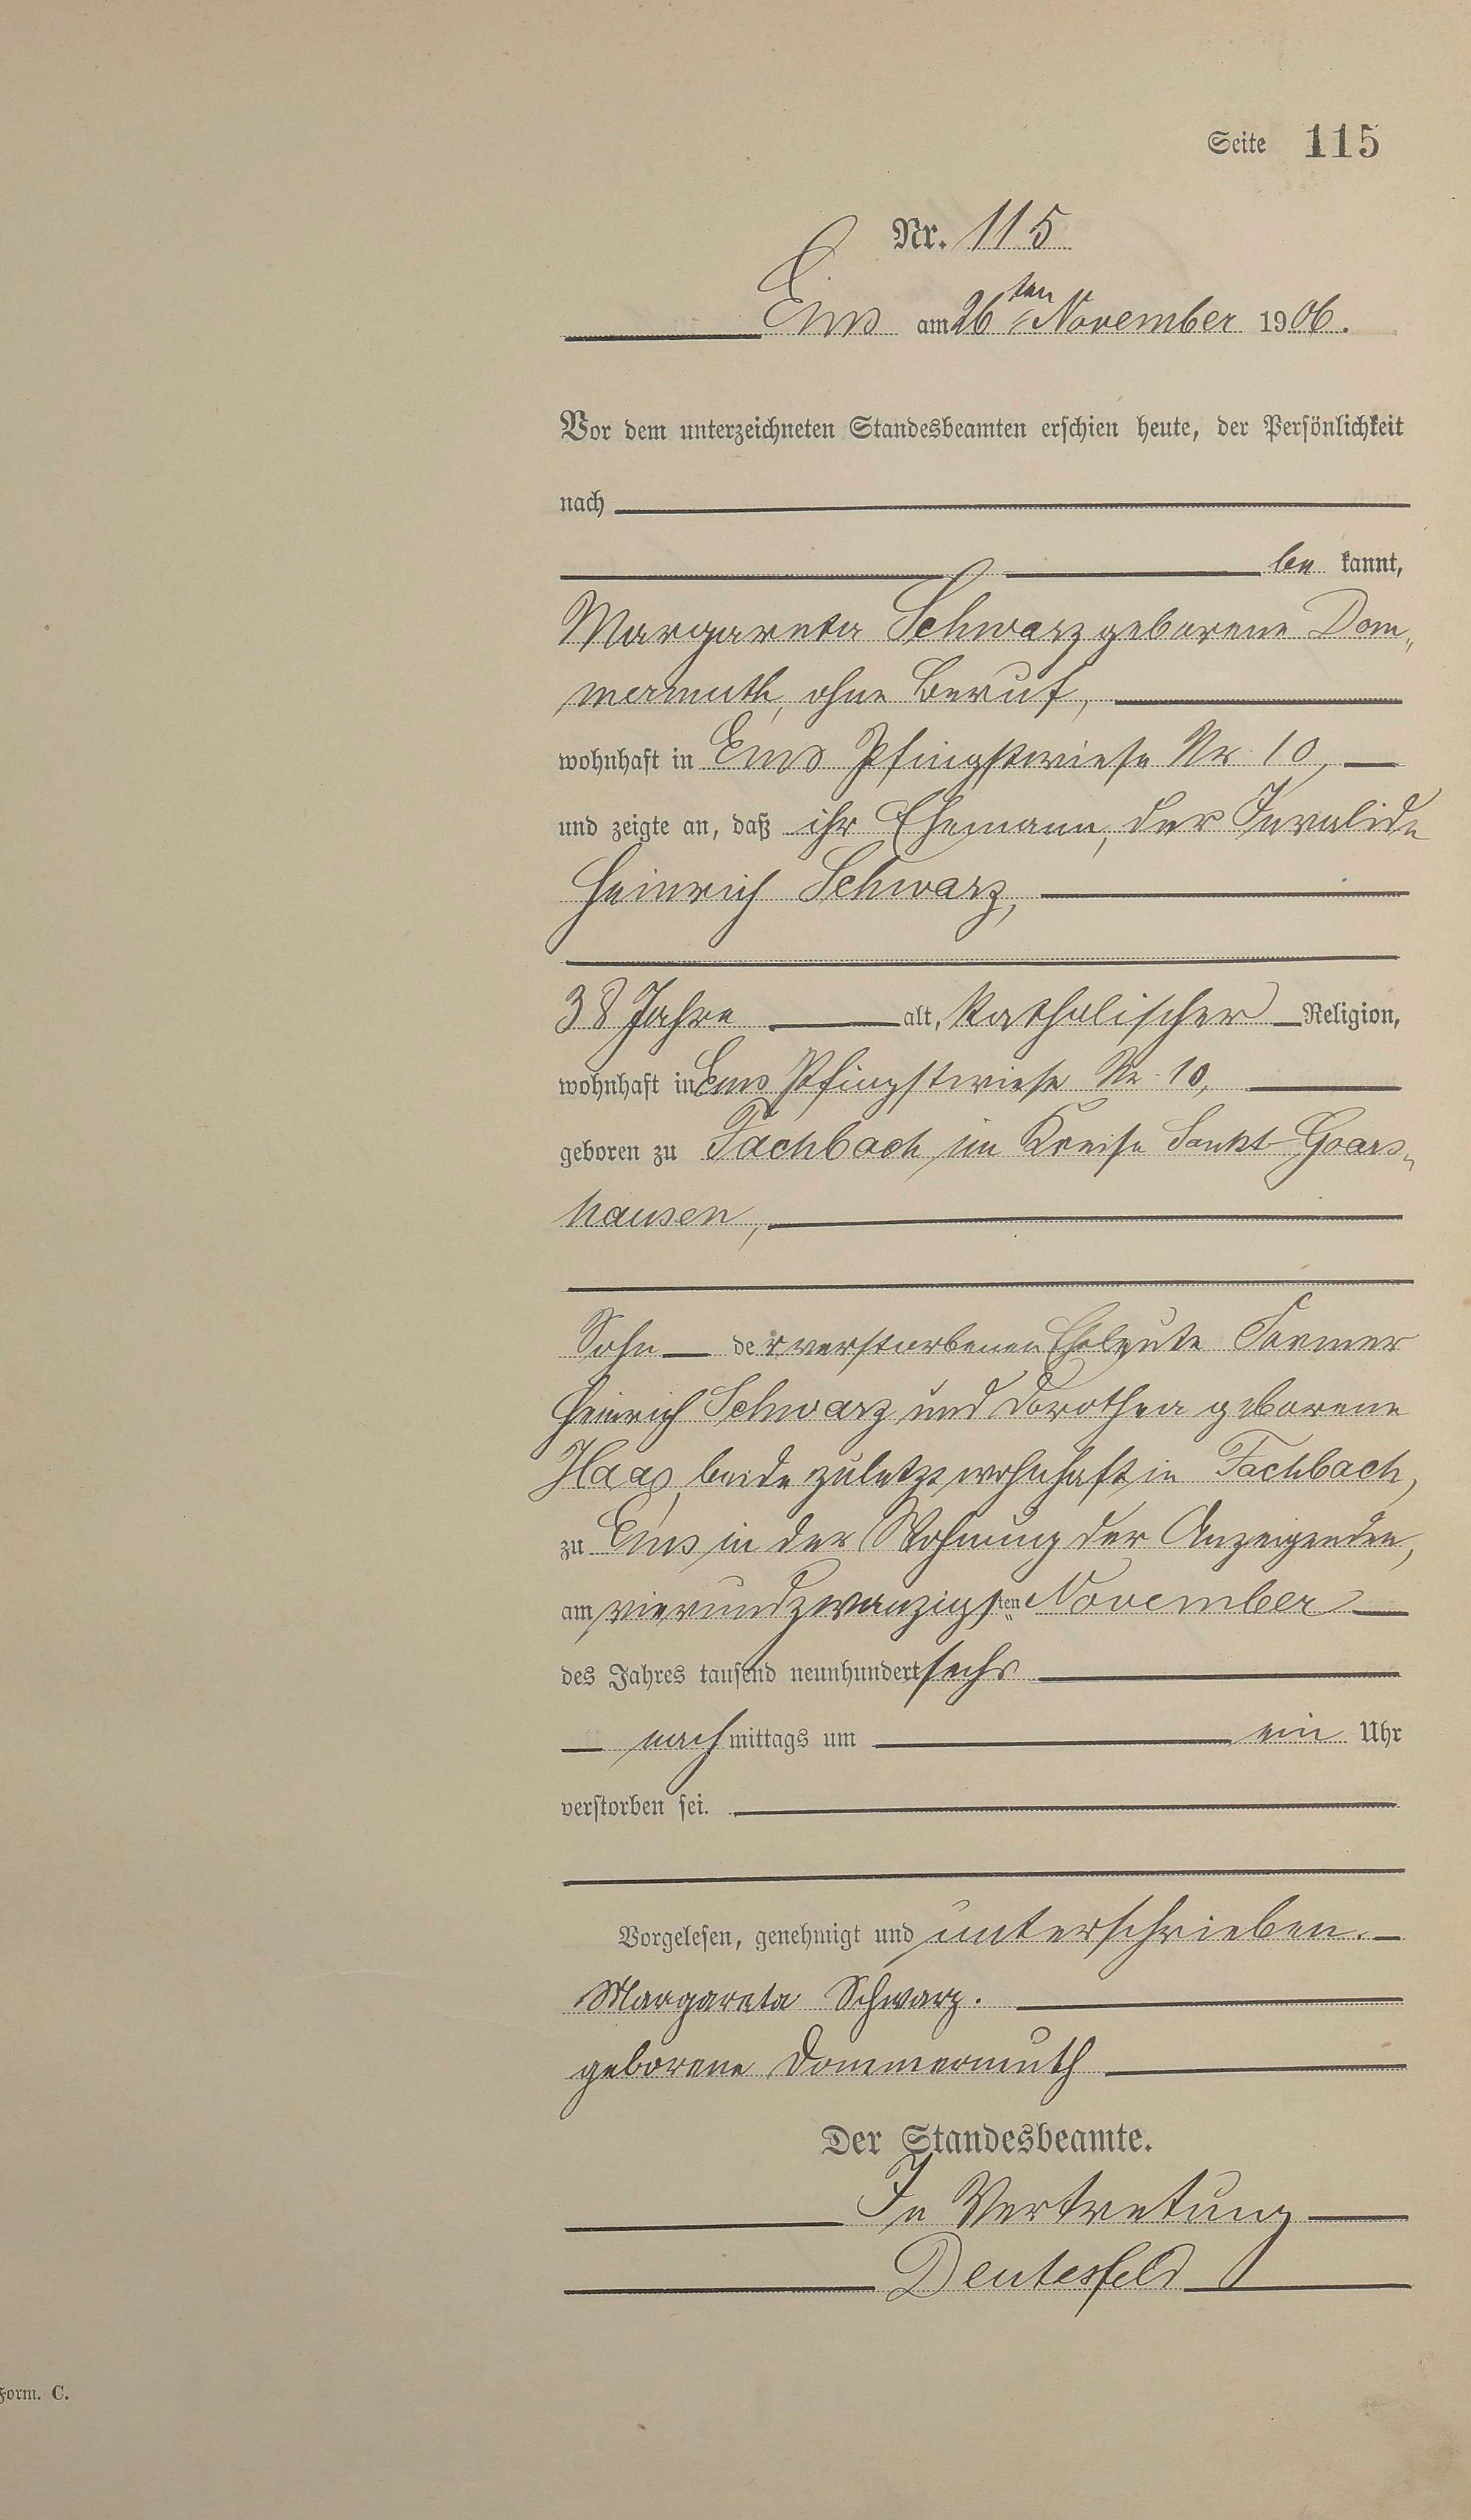 Seite 115
Nr. 115
Ems am 26ten November 1906.
Vor dem unterzeichneten Standesbeamten erschien heute, der Persönlichkeit
nach
be kannt,
Margareta Schwarz geborene Dom„
mermuth, ohne Beruf,
wohnhaft in Ems Pfingstwiese Nr. 10,
und zeigte an, daß ihr Ehemann, der Invalide
Heinrich Schwarz,
38 Jahre alt, katholischer Religion,
wohnhaft in Ems Pfingstwiese Nr. 10,
geboren zu Fachbach im Kreise Sankt Goars„
hausen,
Sohn der verstorbenen Eheleute Former
Heinrich Schwarz und Dorothea geborene
Haas, beide zuletzt wohnhaft in Fachbach,
zu Ems in der Wohnung der Anzeigenden,
am vierundzwanzigsten November
des Jahres tausend neunhundert sechs
nach mittags um ein Uhr
verstorben sei.
Vorgelesen, genehmigt und unterschrieben.
Margareta Schwarz.
geborene Dommermuth
Der Standesbeamte.
In Vertretung
Deutesfeld
Form. C.